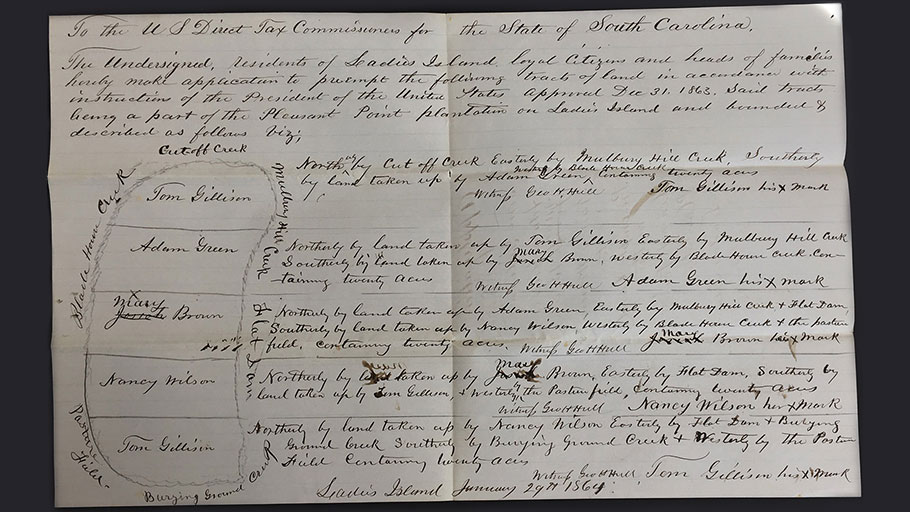 To the U S Direct Tax Commissioners for the State of South Carolina.
The Undersigned, residents of Ladies Island loyal Citizens and heads of families
hereby make application to preempt the following tracts of land in accordance with
instructions of the President of the United States approved Dec 31. 1863. Said tracts
being a part of the Pleasant Point plantation on Ladies Island and bounded &
described as follows viz;
Cut off Creek
Blade House Creek
Mulbury Hill Creek
Flat Dam
Pasture Field
Burying Ground Creek
Tom Gillison
Adam Green
Mary
Brown
Nancy Wilson
Tom Gillison
North by Cut off Creek Easterly by Mulbury Hill Creek, Southerly
Westerly by Blade House Creek
by land taken up by Adam Green, Containing twenty acres
Witness Geo H Hull Tom Gillison his x mark
Northerly by land taken up by Tom Gillison Easterly by Mulbury Hill Creek
Southerly by land taken up by Mary Brown, Westerly by Blade House Creek. Con-
taining twenty acres
Witness Geo H Hull Adam Green his x mark
Northerly by land taken up by Adam Green, Easterly by Mulbury Hill Creek & Flat Dam,
Southerly by land taken up by Nancy Wilson, Westerly by Blade House Creek & the pasture
field, Containing twenty acres. Witness Geo H Hull Mary Brown her x mark
Northerly by land taken up by Mary Brown, Easterly by Flat Dam, Southerly by
land taken up by Tom Gillison, & Westerly by the Pasture field, Containing twenty acres
Witness Geo H Hull Nancy Wilson her x mark
Northerly by land taken up by Nancy Wilson Easterly by Flat Dam & Burying
Ground Creek Southerly by Burying Ground Creek & Westerly by the Pasture
Field Containing twenty acres
Witness Geo H Hull, Tom Gillison his x mark
Ladies Island January 29th 1864